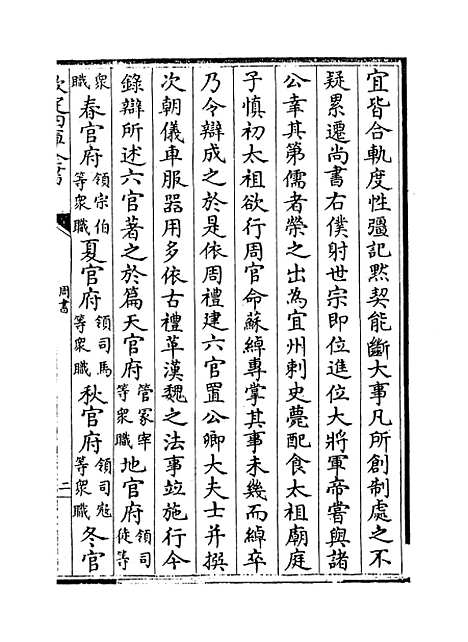 宜皆合軌度性彊記黙契能斷大事凡所創制處之不
疑累遷尚書右僕射世宗即位進位大將軍帝嘗與諸
公幸其第儒者榮之出為宜州刺史薨配食太祖廟庭
子慎初太祖欲行周官命蘇綽專掌其事未幾而綽卒
乃令辯成之於是依周禮建六官置公卿大夫士并撰
次朝儀車服器用多依古禮革漢魏之法事竝施行今
錄辯所述六官著之於篇天官府管冢宰等衆職地官府領司徒等
衆職春官府領宗伯等衆職夏官府領司馬等衆職秋官府領司宼等衆職冬官
欽定四庫全書
周書
二